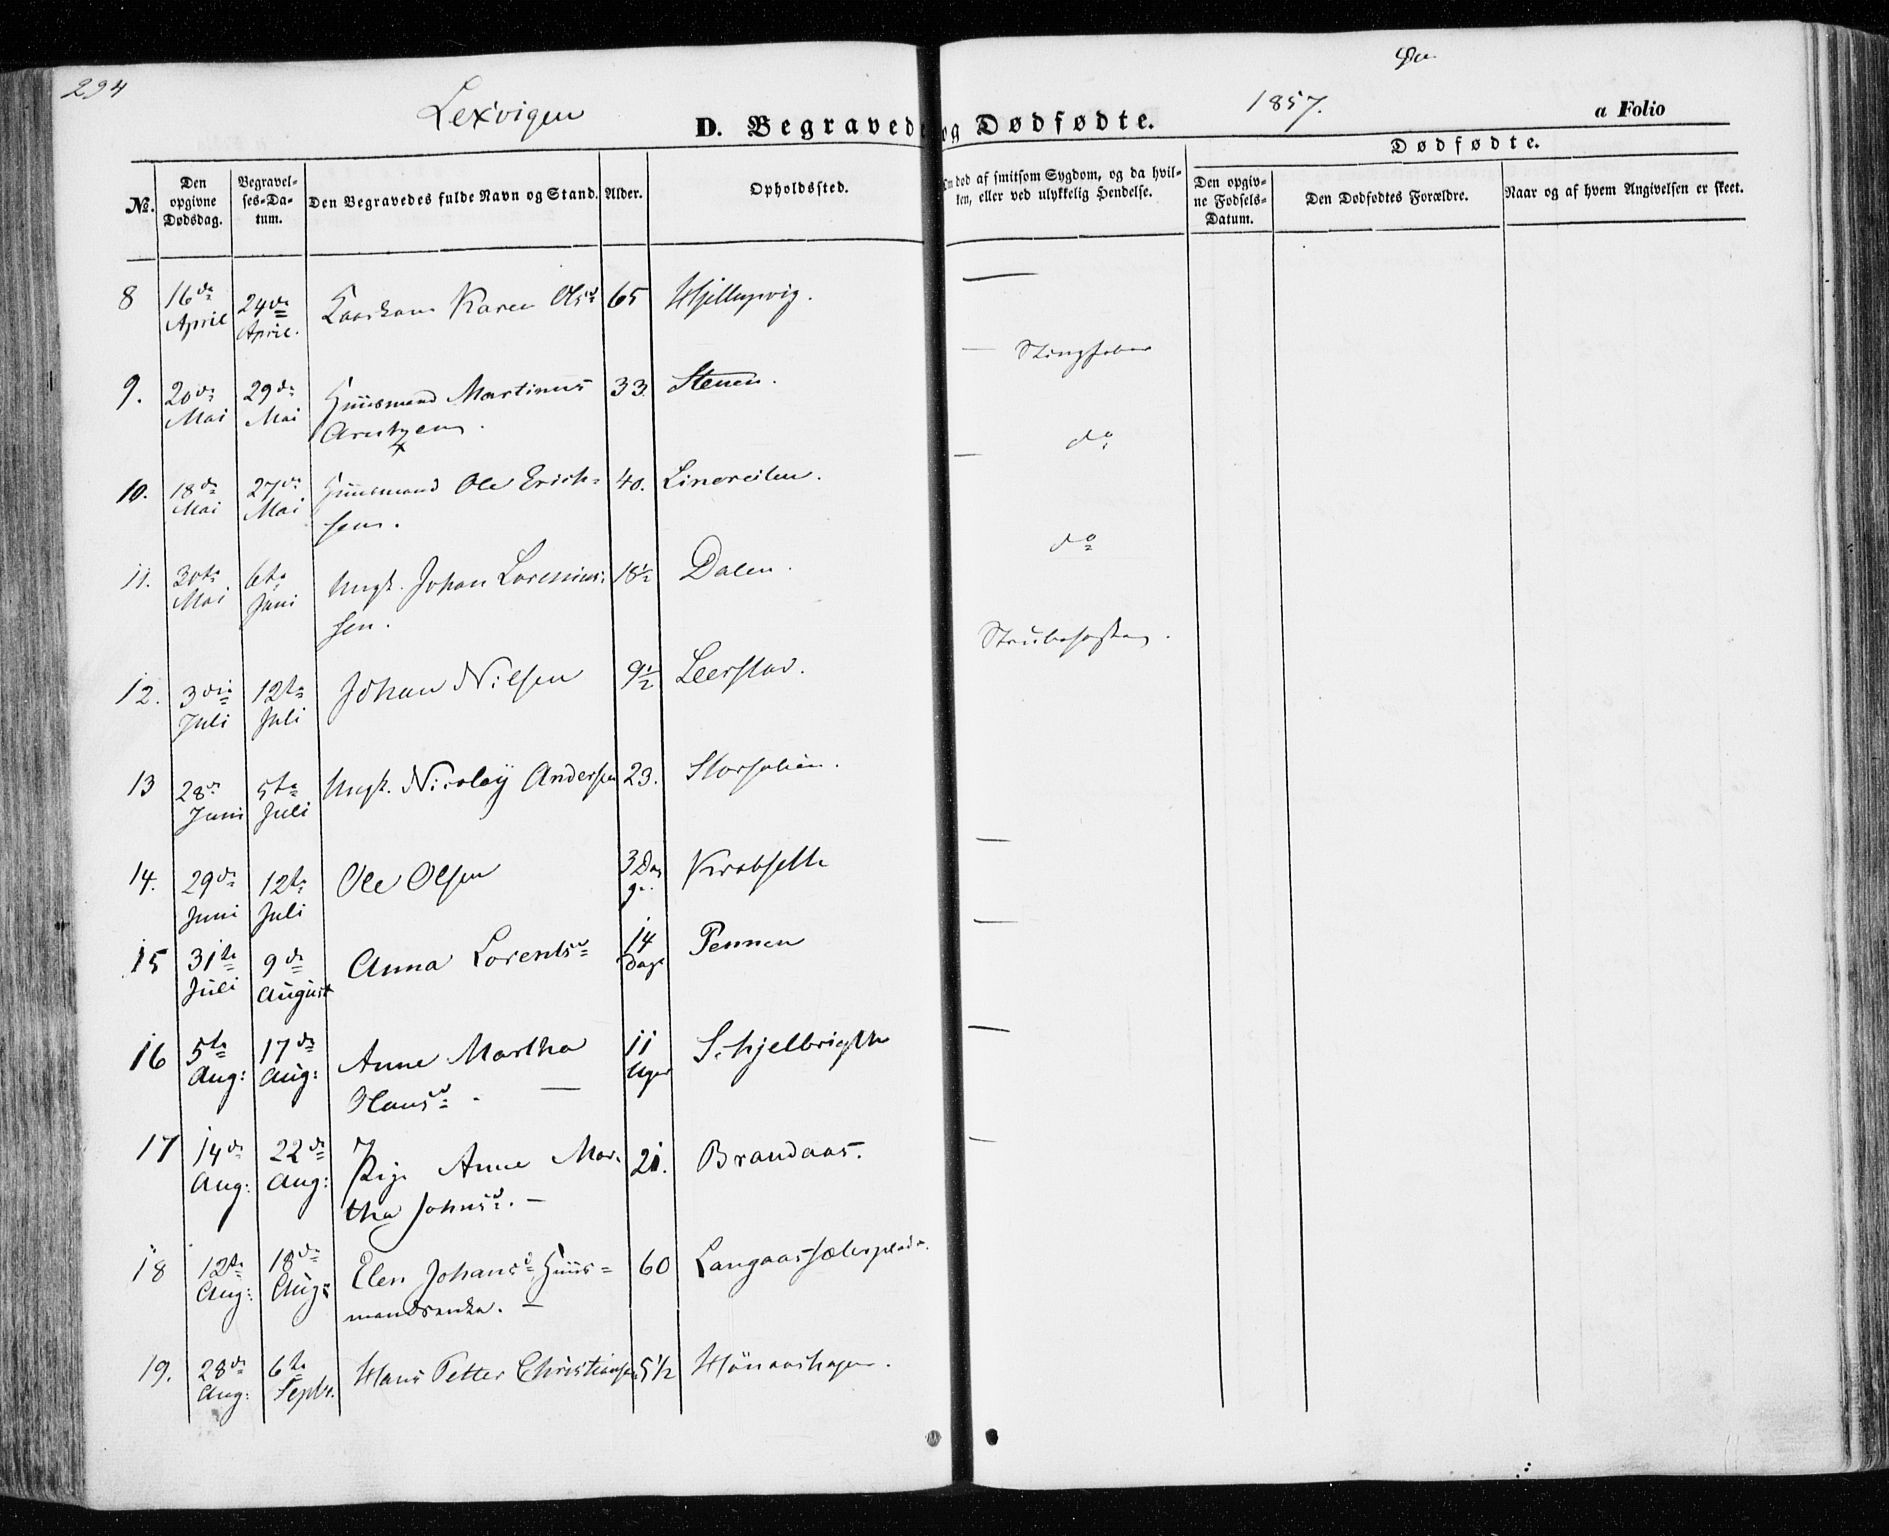 294
Lexvigen
D. Begravede og Dødfødte.
1857.
a Folio
No.
Den opgivne Dødsdag.
Begravelses-Datum.
Den Begravedes fulde Navn og Stand.
Alder.
Opholdssted.
død af smitsom Sygdom, og da hvilken, eller ved ulykkelig Hendelse.
Dødfødte.
Den opgivne Fødsels-Datum.
Den Dødfødtes Forældre.
Naar og af hvem Angivelsen er skeet.
8 16de April 24de April. Karen Olsd 65 —
9. 20de Mai 29de Mai Huusmand Martinus 33. Stenen. —
Arentzen.
10. 18de Mai 27de Mai Huusmand Ole Erich- 40. — do
sen.
11. 30te Mai 6te Juni Ungk. Johan Lorentius- 18½ Dalen. do
sen.
12. 3die Juli 12te Juli Johan Nilsen 9½ Leerstad.
13 28de Juni 5te Juli Ungk. Nicolay Andersen 23.
14. 29de Juni 12te Juli Ole Olsen 3 Dage. Krabseth —
15 31te Juli 9de August Anna Lorentsd 14 Dage Pennen —
16 5te Aug: 17de Aug: Anne Martha 11 Uger —
Hansd. —
17 14de Aug: 22de Aug: Pige Anne Mar- 21. Brandaas. —
tha Johnsd. —
18 12te Aug: 18de Aug: Elen Johansd Huus- 60
mandsenke. —
19. 28de Aug: 6te Septr. Hans Petter Christiansen 5½